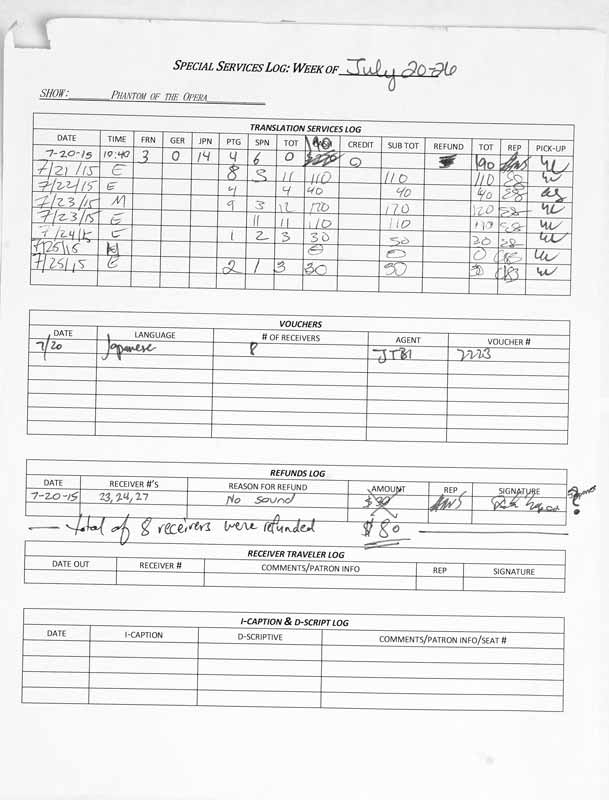 SPECIAL SERVICES LOG: WEEK OF July 20-26
SHOW: PHANTOM OF THE OPERA
TRANSLATION SERVICES LOG
DATE TIME FRN GER JPN PTG SPN TOT CREDIT SUB TOT REFUND TOT REP PICK-UP
7-20-15 10:40 3 0 14 4 6 0 0 190
7/21/15 E 8 3 11 110 110 110 SB
7/22/15 E 4 4 40 40 40 SB
7/23/15 M 9 3 12 120 120 120 SB
7/23/15 E 11 11 110 110 110 SB
7/24/15 E 1 2 3 30 30 30 SB
7/25/15 0 0 0
7/25/15 E 2 1 3 30 30 30
VOUCHERS
DATE LANGUAGE # OF RECEIVERS AGENT VOUCHER #
7/20 Japanese 8 JTBI 2223
REFUNDS LOG
DATE RECEIVER #'S REASON FOR REFUND AMOUNT REP SIGNATURE
7-20-15 23, 24, 27 No sound $30
total of 8 receivers were refunded $80
RECEIVER TRAVELER LOG
DATE OUT RECEIVER # COMMENTS/PATRON INFO REP SIGNATURE
I-CAPTION & D-SCRIPT LOG
DATE I-CAPTION D-SCRIPTIVE COMMENTS/PATRON INFO/SEAT #